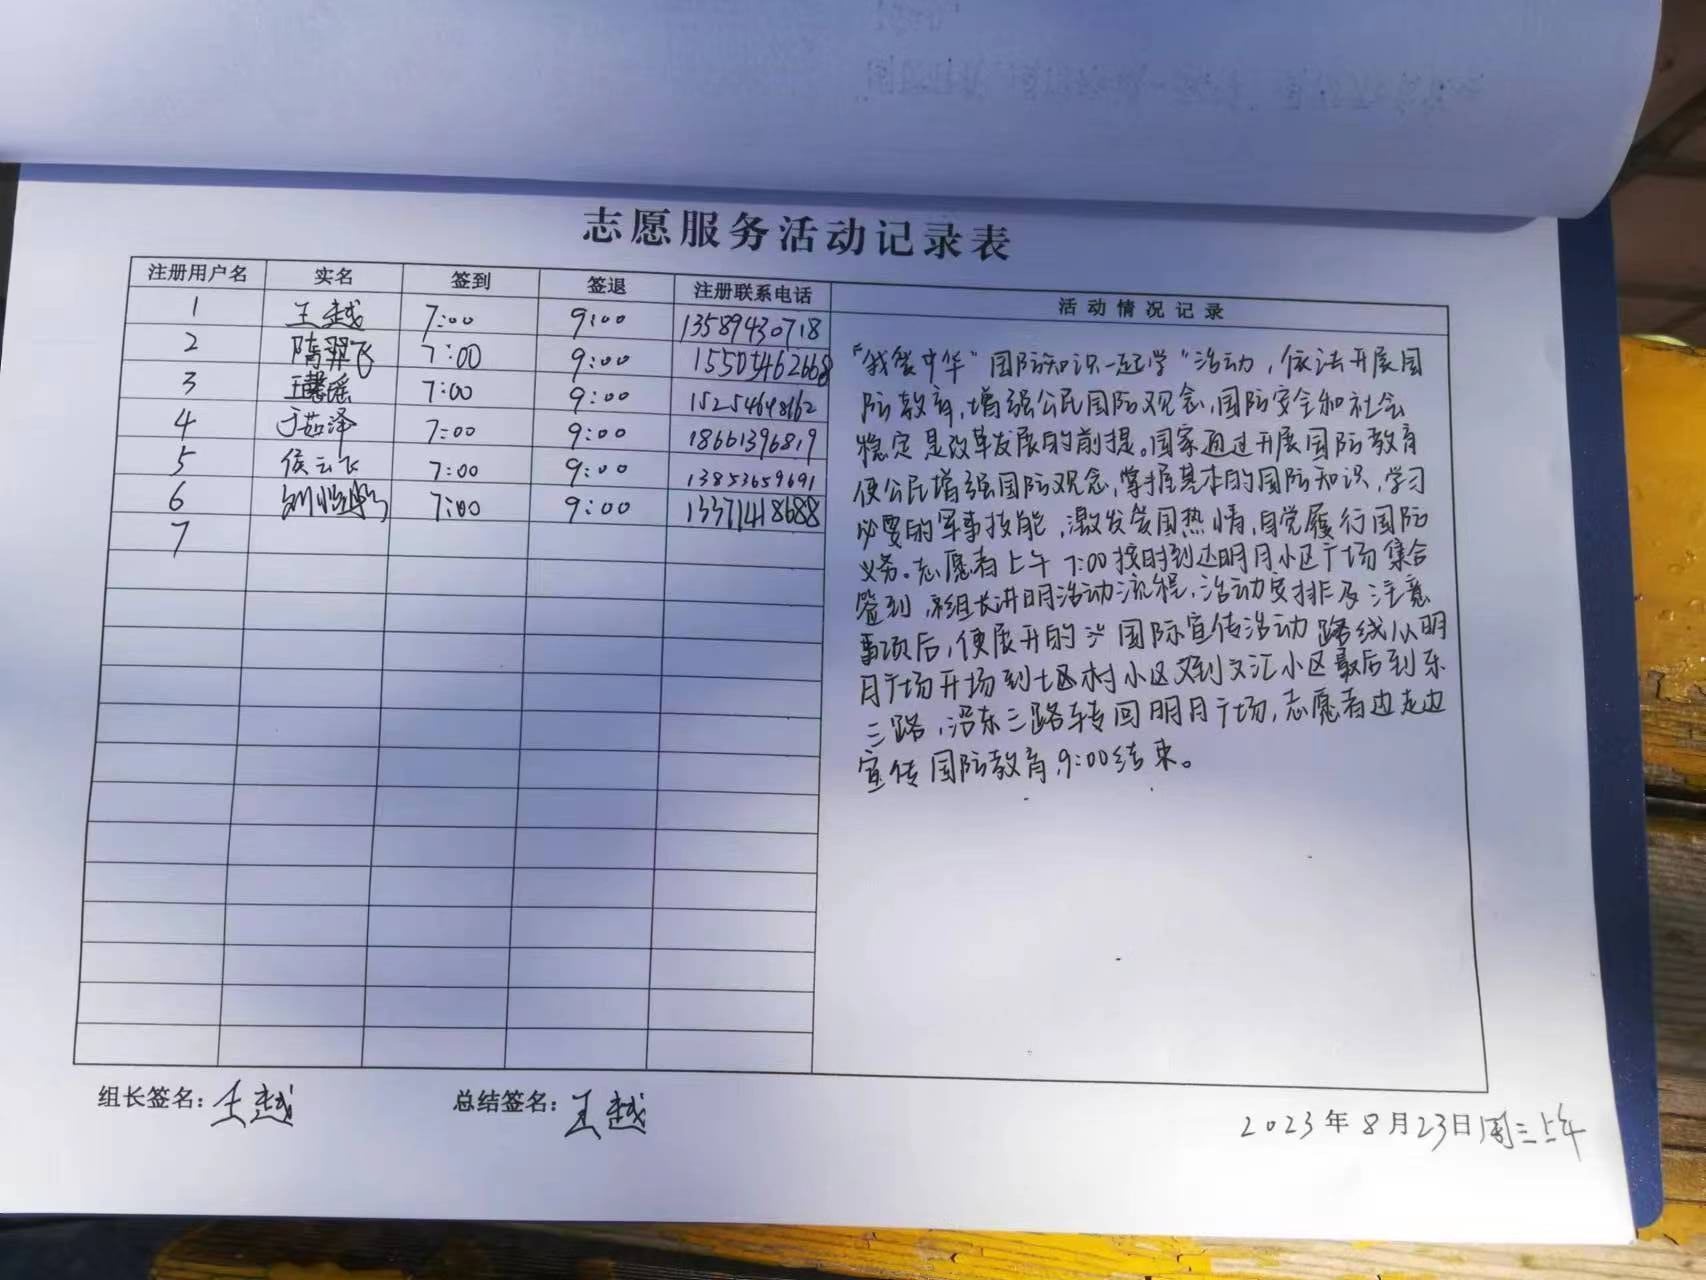 志愿服务活动记录表
注册用户名 实名 签到 签退 注册联系电话 活动情况记录
1 王越 7:00 9:00 13589430718
2 陈羿飞 7:00 9:00 15505462668
3 王馨瑶 7:00 9:00 15254648162
4 于茹泽 7:00 9:00 18661396819
5 侯云飞 7:00 9:00 13853659691
6 7:00 9:00 13371418688
7
"我爱中华"国防知识一起学"活动，依法开展国
防教育，增强公民国防观念，国防安全和社会
稳定是改革发展的前提。国家通过开展国防教育
使公民增强国防观念，掌握基本的国防知识，学习
必要的军事技能，激发爱国热情，自觉履行国防
义务。志愿者上午7:00按时到达明月小区广场集合
签到，组长讲明活动流程，活动安排及注意
事项后，便展开的 国际宣传活动路线从明
月广场开场到七区村小区又到文汇小区最后到东
三路，沿东三路转回明月广场，志愿者边走边
宣传国防教育，9:00结束。
组长签名：王越 总结签名：王越
2023年8月23日周三上午